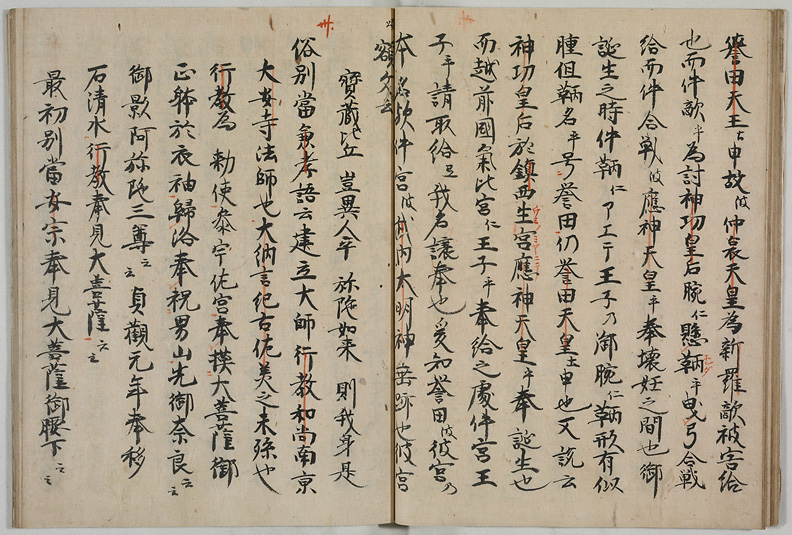 誉田天王ト申故ハ仲哀天皇為新羅敵被害給
也而件敵ヲ為討神功皇后腕仁懸鞆ヲ曳弓合戦
給而件合戦ハ應神天皇ヲ奉壊妊之間也御
誕生之時件鞆仁アエテ王子乃御腕仁鞆形有似
腫但鞆名ヲ号誉田仍誉田天皇ト申也又説云
神功皇后於鎮西生宮應神天皇ヲ奉誕生也
而越前國氣比宮仁王子ヲ奉給之處件宮王
子ヲ請取給天我名譲奉也爰知誉田ハ彼宮乃
本名欤件宮ハ式内大明神垂跡也彼宮
額久云
寶蔵比丘豈異人乎 弥陀如来 則我身是
俗別當兼孝語云建立大師行教和尚南京
大安寺法師也大納言紀古佐美之末孫也
行教為 勅使参宇佐宮奉摸大菩薩御
正躰於衣袖歸洛奉祝男山先御奈良云云
御影阿弥陀三尊云云 貞觀元年奉移
石清水行教奉見大菩薩云云
最初別當安宗奉見大菩薩御腰下云云